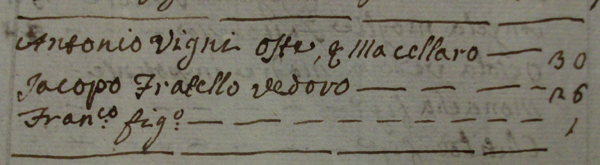 Antonio Vigni Oste, e Macellaro — 30
Jacopo Fratello vedovo — — — — 26
Fran.co fig.o — — — — — — — 1